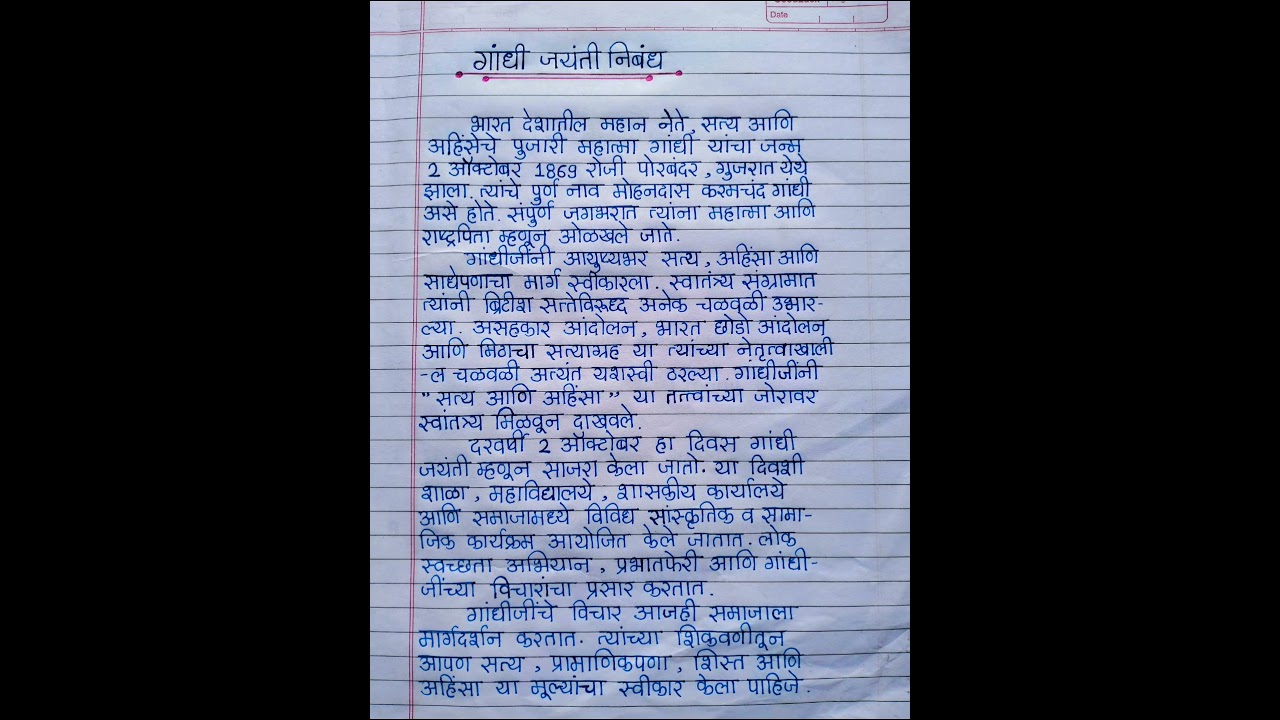 Date
गांधी जयंती निबंध
भारत देशातील महान नेते, सत्य आणि
अहिंसेचे पुजारी महात्मा गांधी यांचा जन्म
2 ऑक्टोबर 1869 रोजी पोरबंदर, गुजरात येथे
झाला. त्यांचे पुर्ण नाव मोहनदास करमचंद गांधी
असे होते. संपुर्ण जगभरात त्यांना महात्मा आणि
राष्ट्रपिता म्हणून ओळखले जाते.
गांधीजींनी आयुष्यभर सत्य, अहिंसा आणि
साधेपणाचा मार्ग स्वीकारला. स्वातंत्र्य संग्रामात
त्यांनी ब्रिटीश सत्तेविरूध्द अनेक चळवळी उभार-
ल्या. असहकार आंदोलन, भारत छोडो आंदोलन
आणि मिठाचा सत्याग्रह या त्यांच्या नेतृत्वाखाली
-ल चळवळी अत्यंत यशस्वी ठरल्या. गांधीजींनी
"सत्य आणि अहिंसा" या तत्त्वांच्या जोरावर
स्वांतत्र्य मिळवून दाखवले.
दरवर्षी 2 ऑक्टोबर हा दिवस गांधी
जयंती म्हणून साजरा केला जातो. या दिवशी
शाळा, महाविद्यालये, शासकीय कार्यालये
आणि समाजामध्ये विविध सांस्कृतिक व सामा-
जिक कार्यक्रम आयोजित केले जातात. लोक
स्वच्छता अभियान, प्रभातफेरी आणि गांधी-
जींच्या विचारांचा प्रसार करतात.
गांधीजींचे विचार आजही समाजाला
मार्गदर्शन करतात. त्यांच्या शिकवणीतून
आपण सत्य, प्रामाणिकपणा, शिस्त आणि
अहिंसा या मूल्यांचा स्वीकार केला पाहिजे.